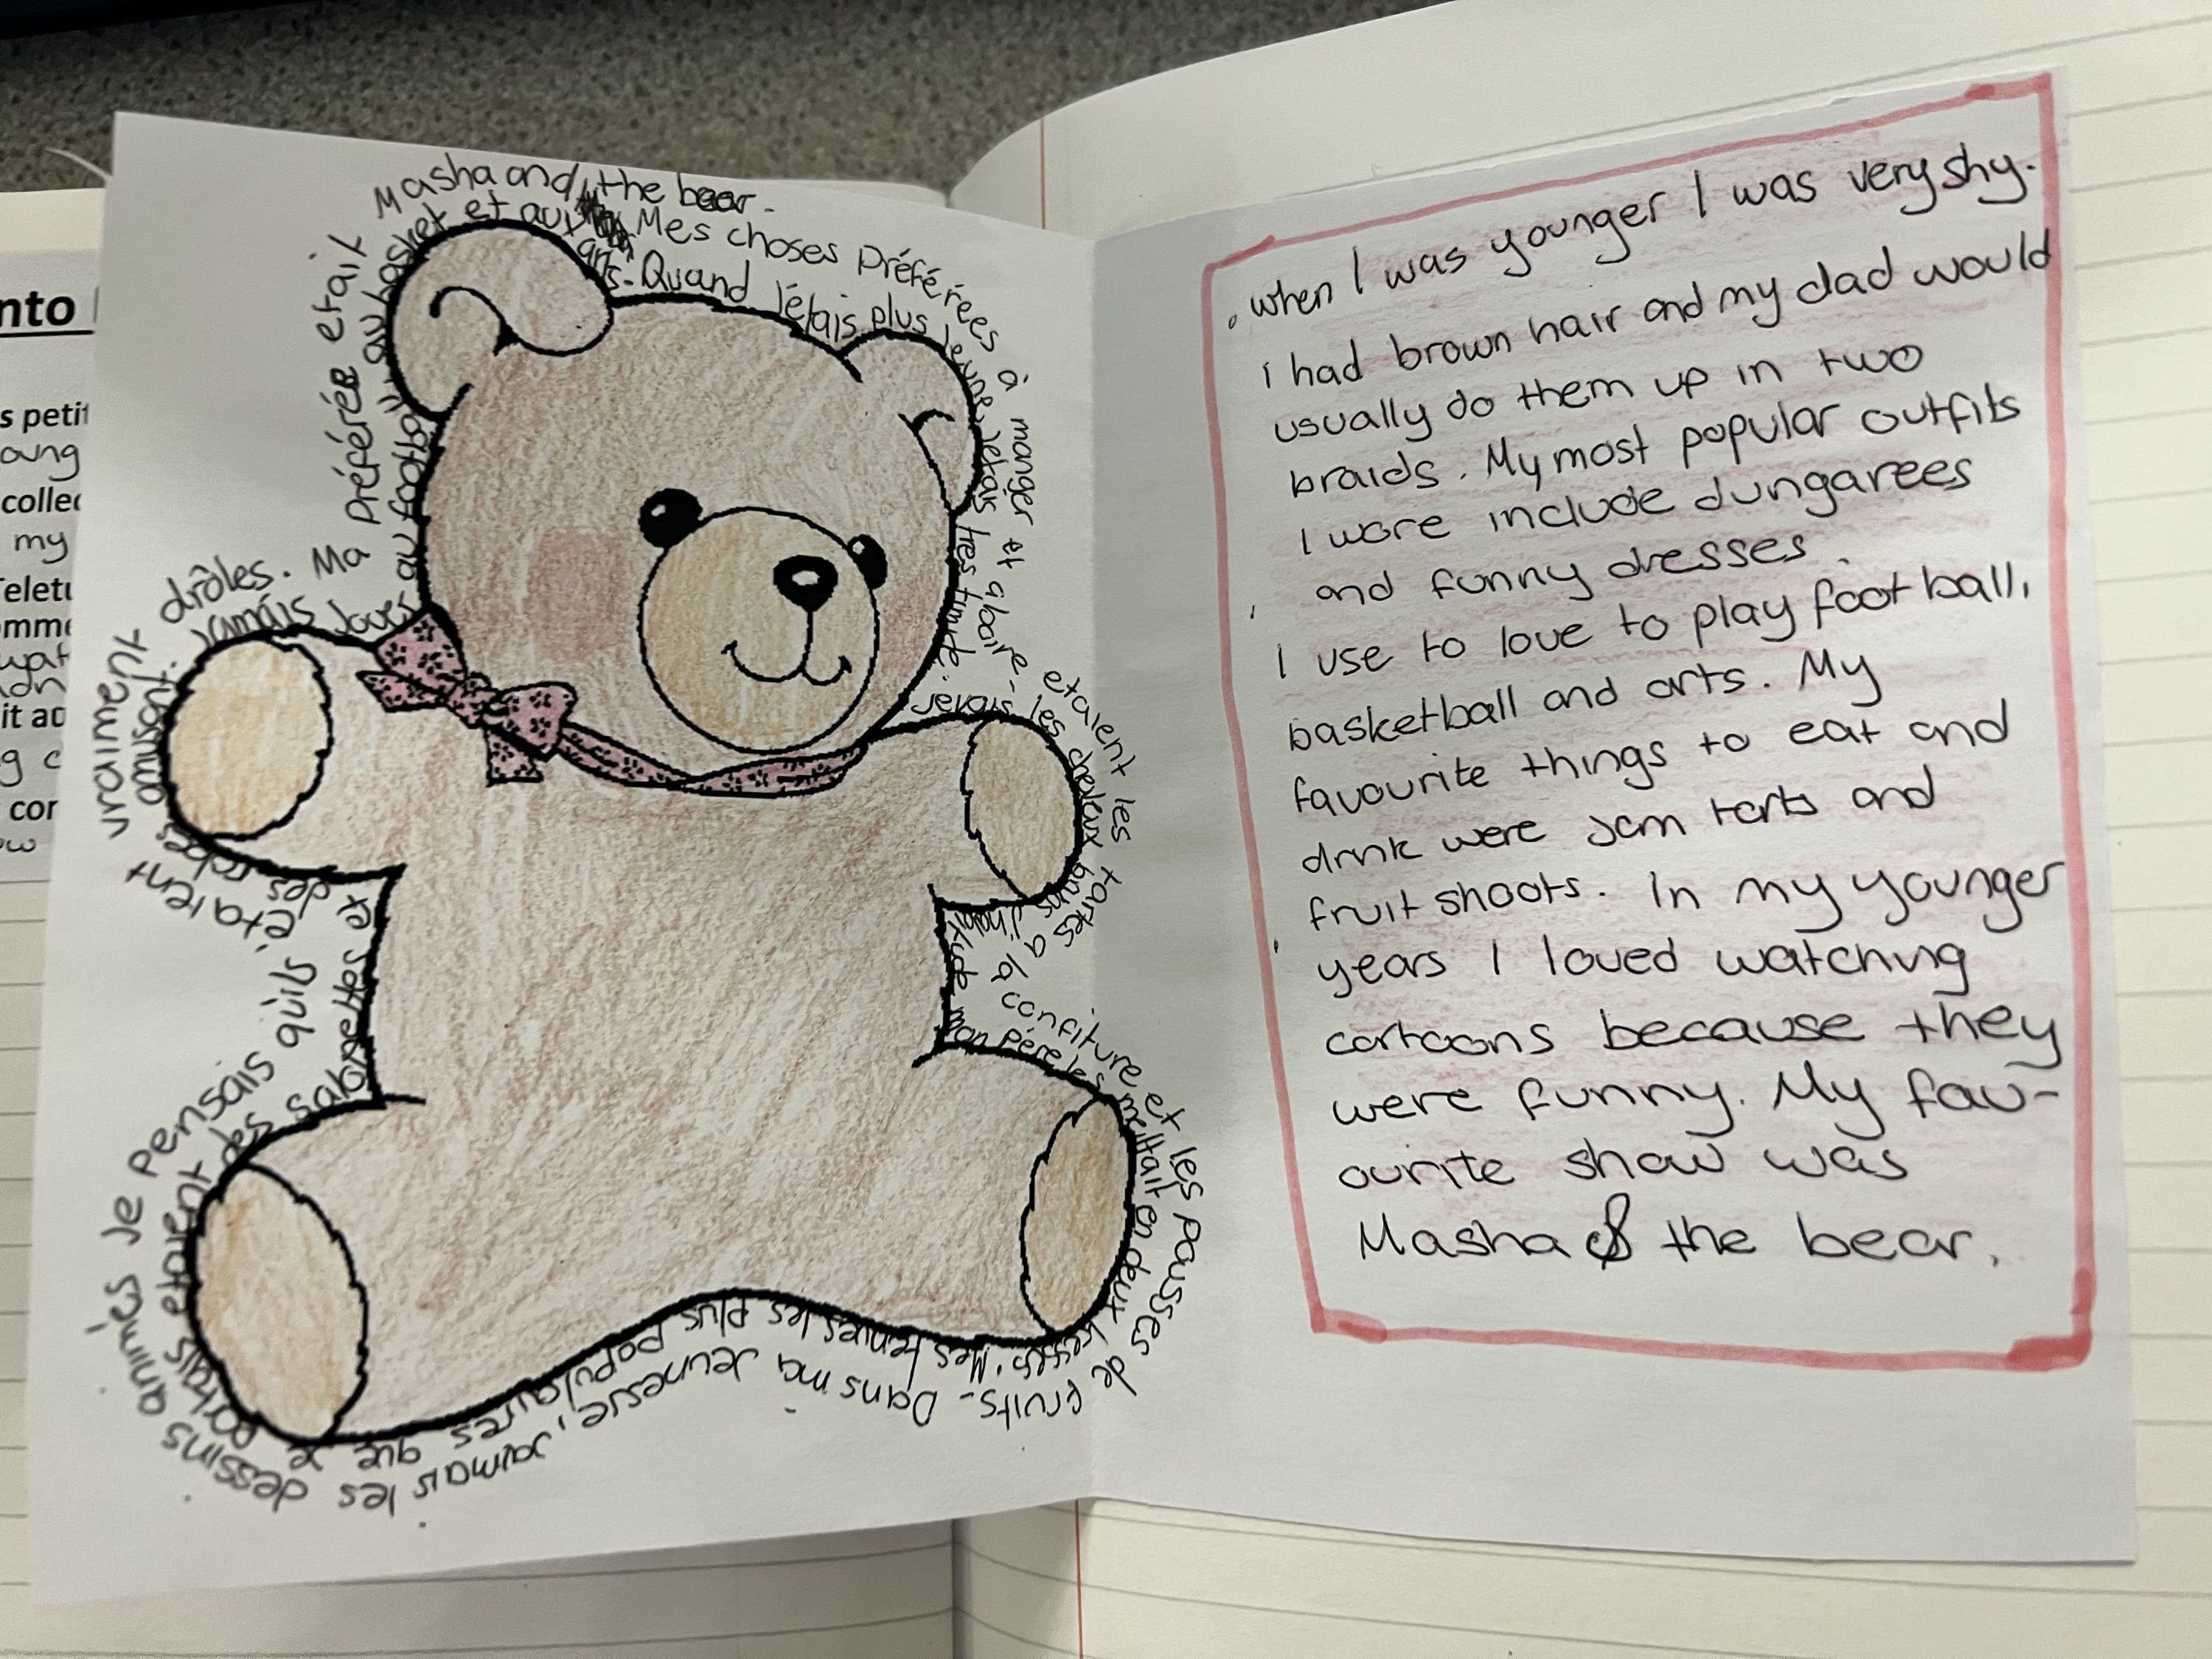 nto
s petit
oung
collec
my
Teletu
omme
wat
adn
it ac
g c
con
ow
Quand j'étais plus jeune, j'étais très timide. j'avais
les cheveux bruns
mon père les mettait en deux tresses. Mes tenues les plus populaires que je portais etaient des salopettes et des robes
amusant. jamais jouer au football, au basket et aux
arts.
Mes choses préférées à manger et aboire etaient les tartes a la confiture et les pausses de fruits. Dans ma jeunesse, jaimais les dessins animés je pensais qu'ils étaient vraiment drôles. Ma préférée etait
Masha and the bear.
when I was younger I was very shy.
i had brown hair and my dad would
usually do them up in two
braids. My most popular outfits
I wore include dungarees
and funny dresses.
I use to love to play football,
basketball and arts. My
favourite things to eat and
drink were jam tarts and
fruit shoots. In my younger
years I loved watching
cartoons because they
were funny. My fav-
ourite show was
Masha & the bear.